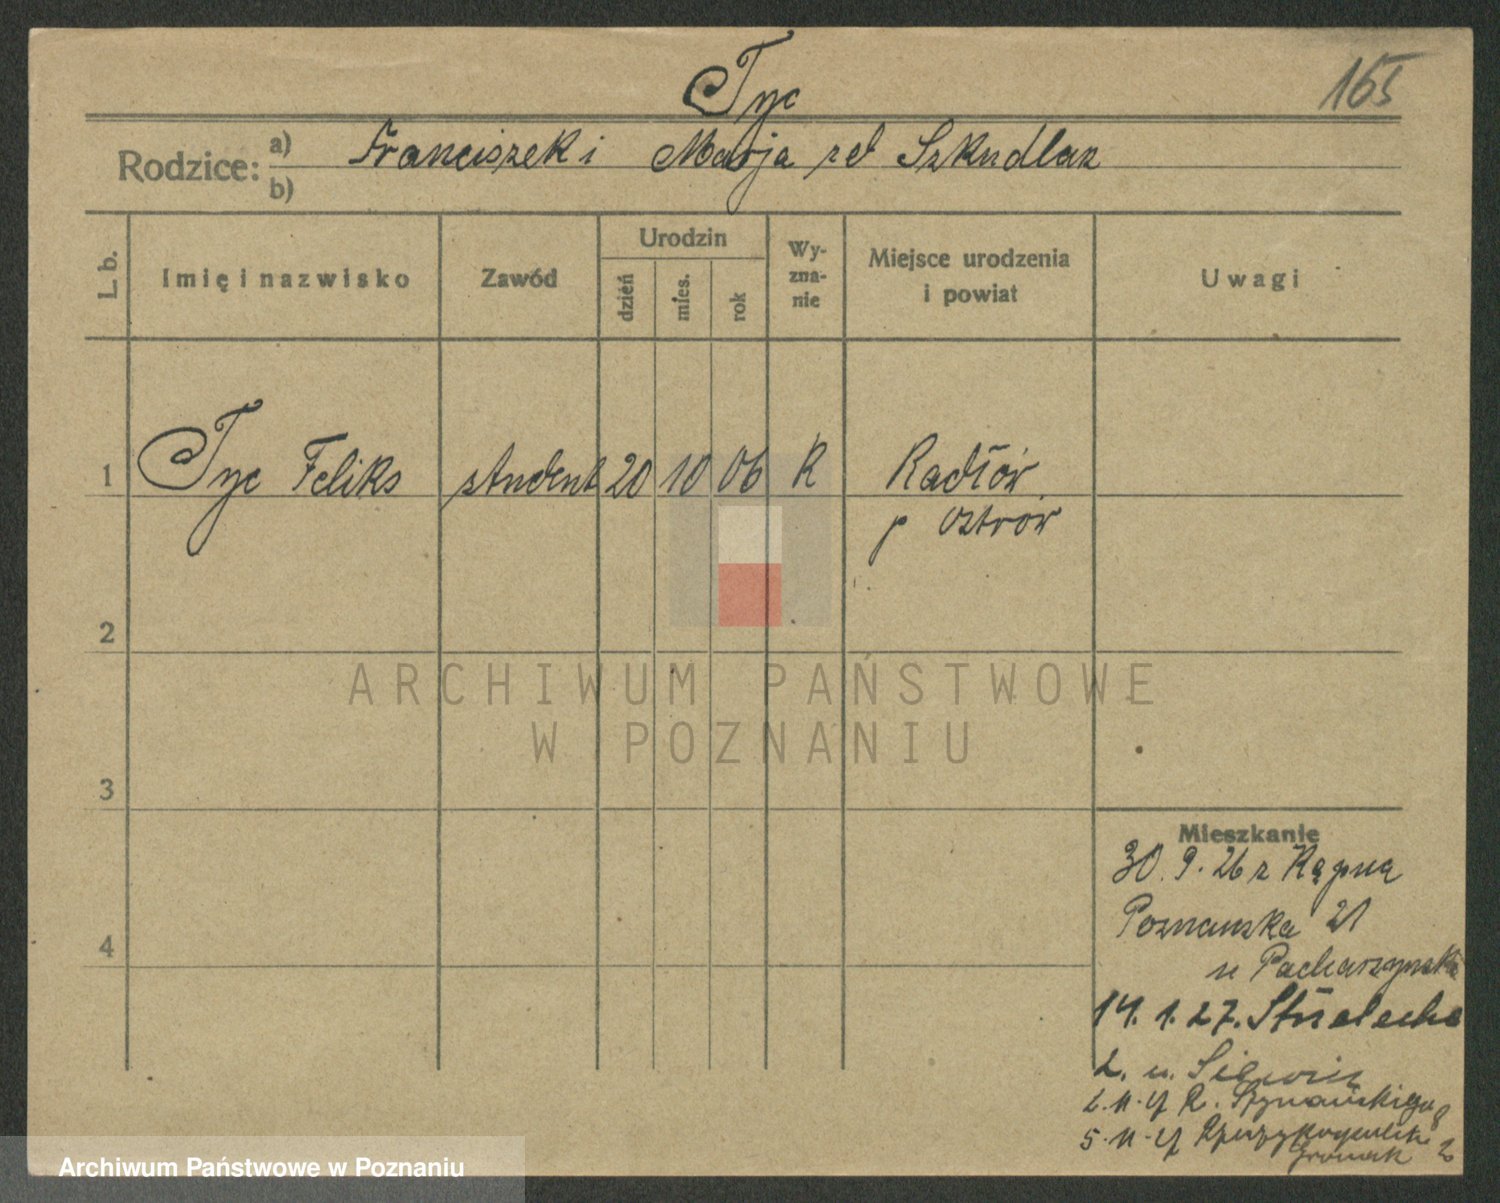 Tyc
165
Rodzice: a) Franciszek i Marja zd Szkudlarz
b)
L. b.
Imię i nazwisko
Zawód
Urodzin
dzień
mies.
rok
Wy-
zna-
nie
Miejsce urodzenia
i powiat
Uwagi
1 Tyc Feliks student 20 10 06 R Radłów
p Ostrów
2
ARCHIWUM PAŃSTWOWE
W POZNANIU
3
Mieszkanie
30. 9. 26 z Kąpna
Poznańska 21
4
u
14. 1. 27. Strzelecka
2. u.
2. 11. 27 R. Szymańskiego 8
5. 11. 27
Archiwum Państwowe w Poznaniu